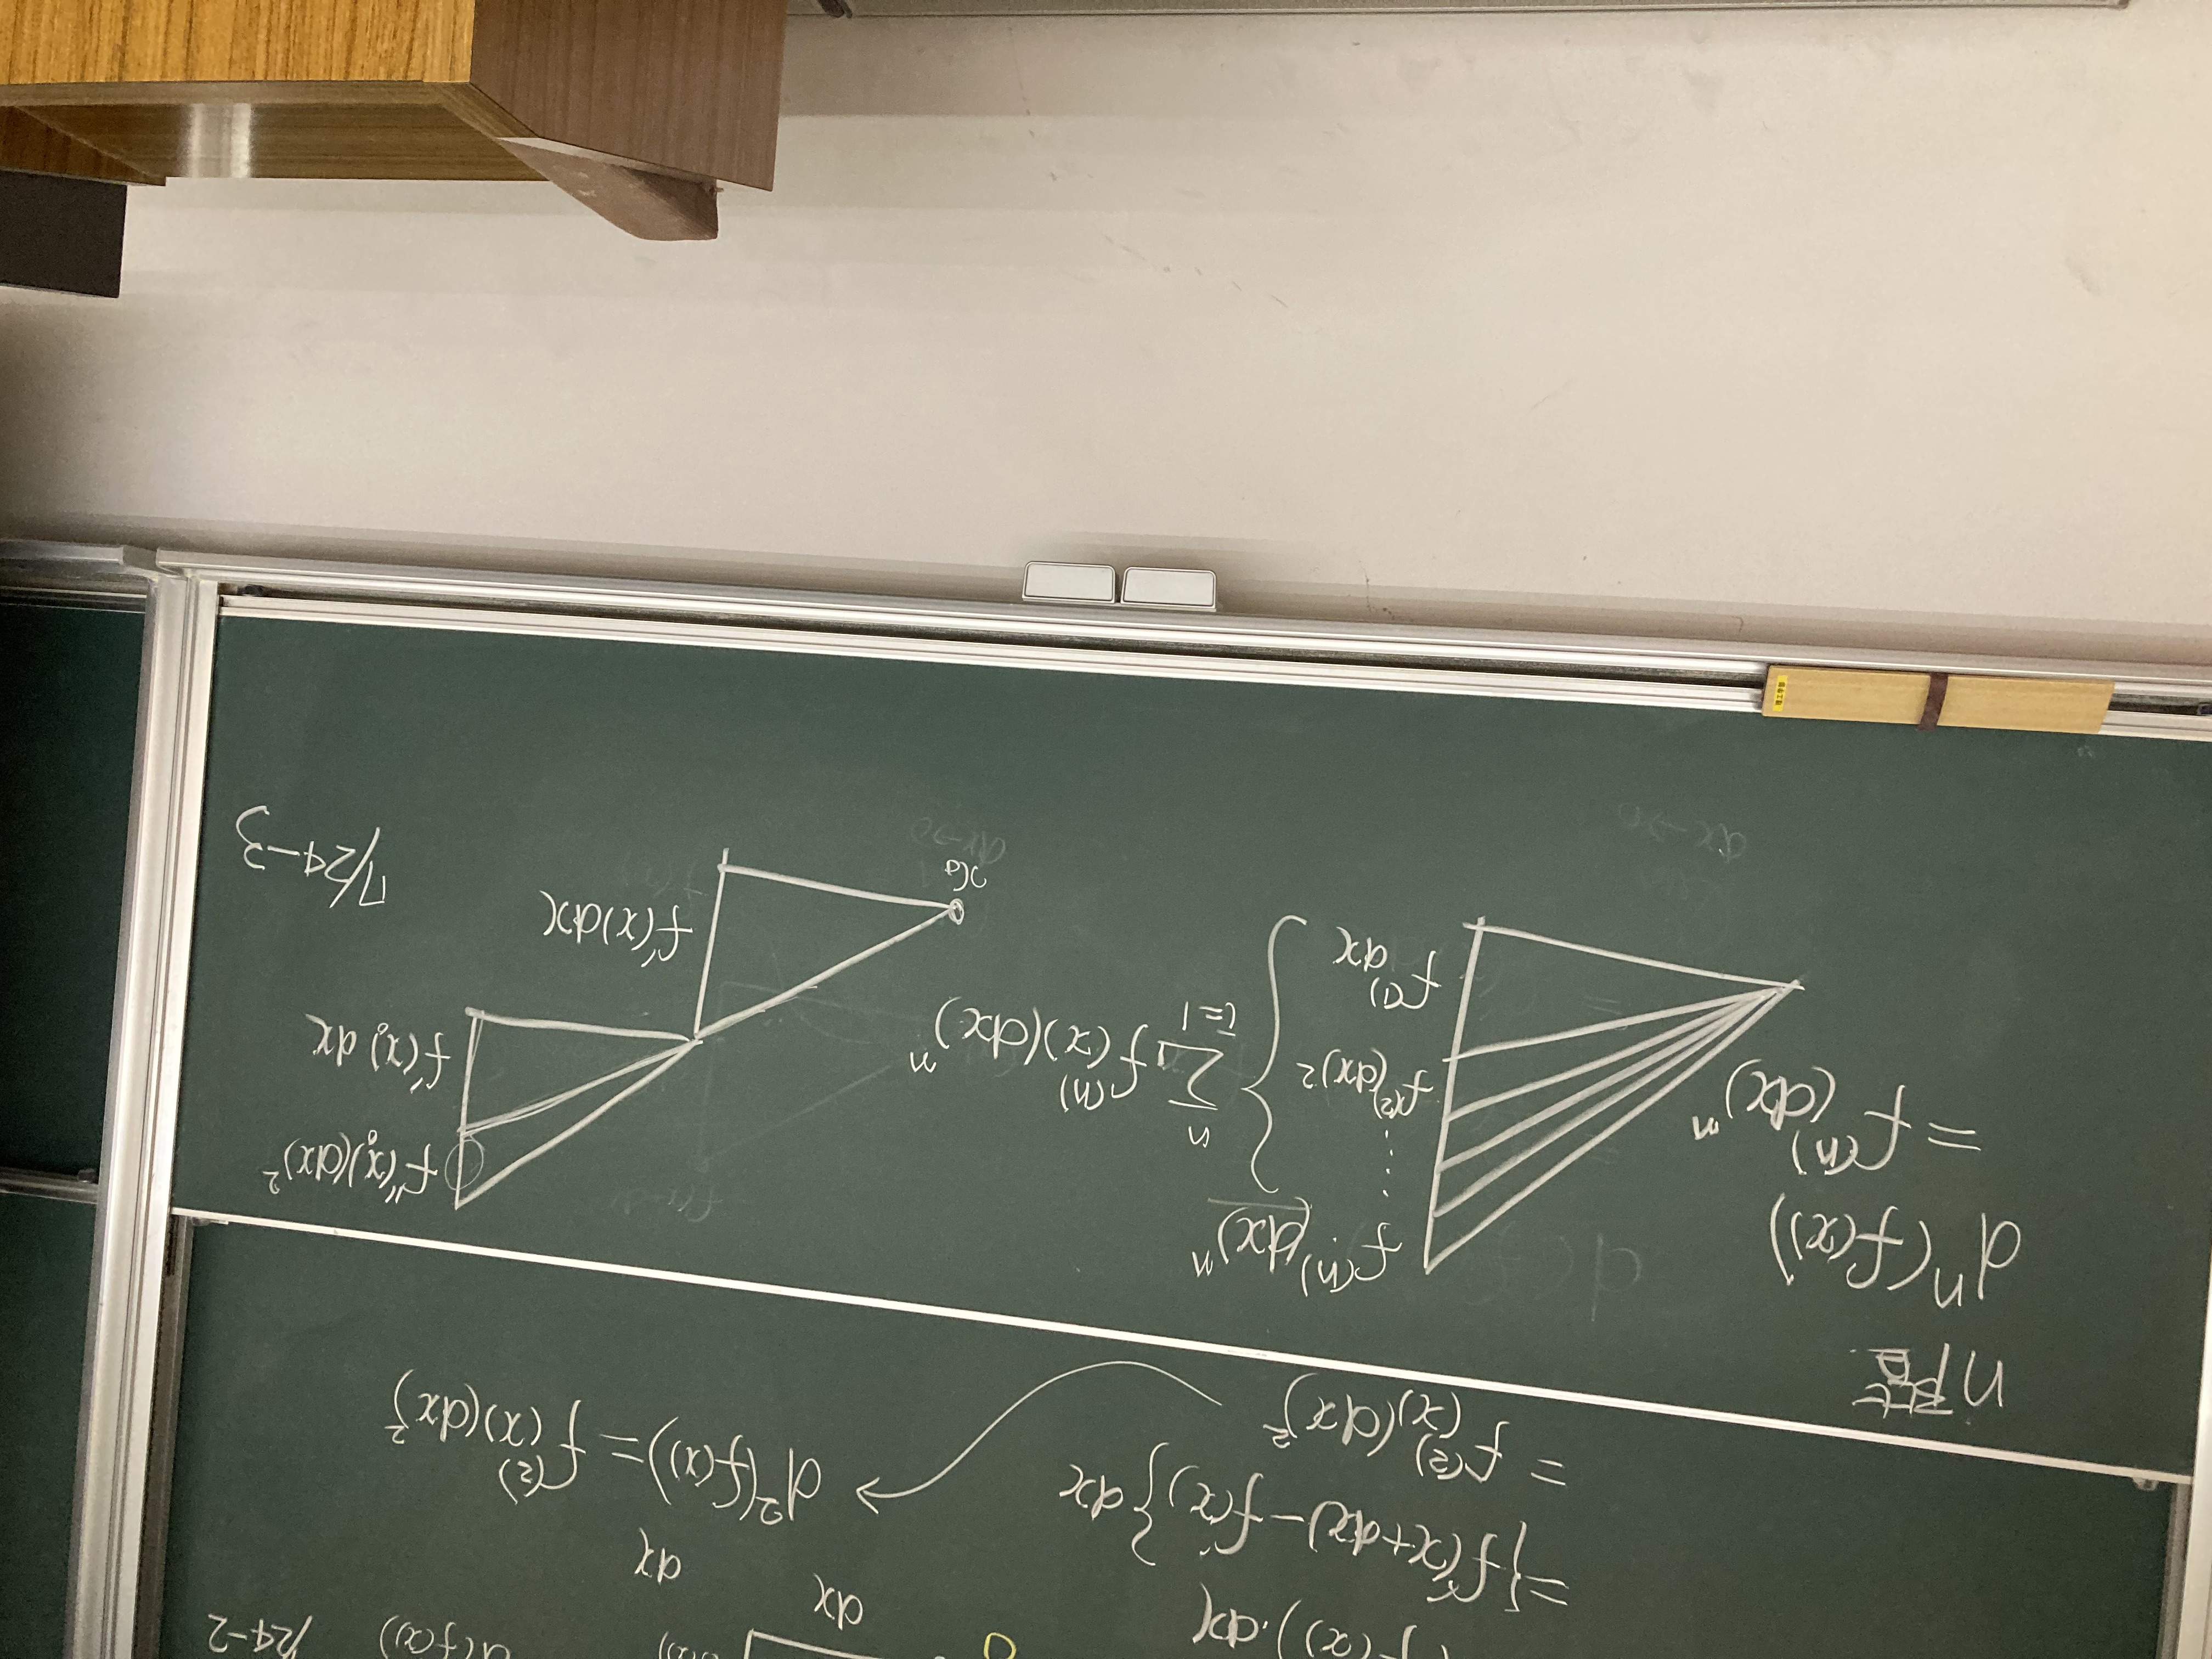 f(x)).dx
={f'(x+dx)-f'(x)}dx
=f^(2)(x)(dx)^2
dx
dx
d(f(x))
7/24-2
d^2(f(x))=f^(2)(x)(dx)^2
n階
d^n(f(x))
=f^(n)(dx)^n
f^(n)(dx)^n
⋮
f^(2)(dx)^2
f^(1)dx
n
Σ f^(n)(x)(dx)^n
i=1
f''(x₀)(dx)^2
f'(x₀)dx
f'(x)dx
x₀
7/24-3